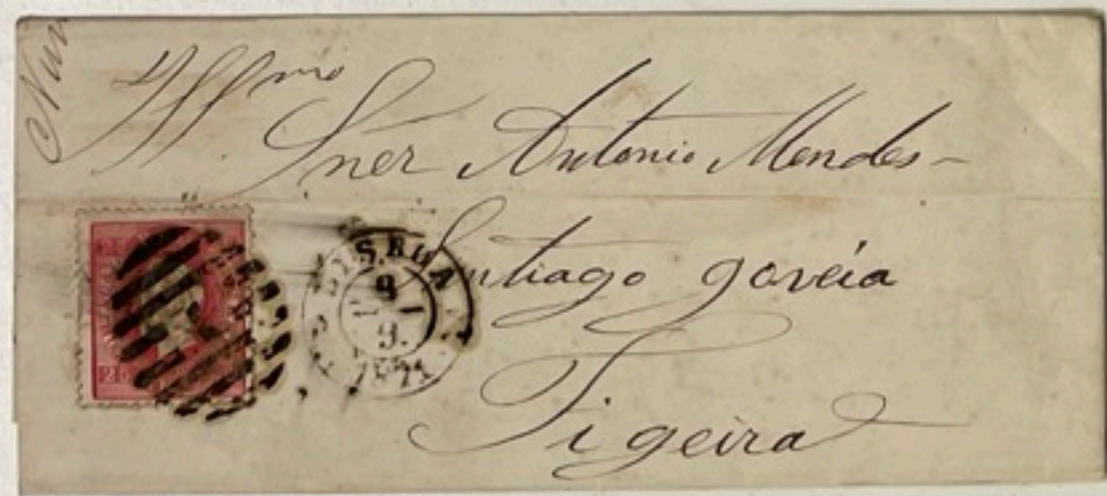 Num
Illmo
Sner Antonio Mendes-
Santiago govéia
Figeira
LISBOA
9
9
1871
25